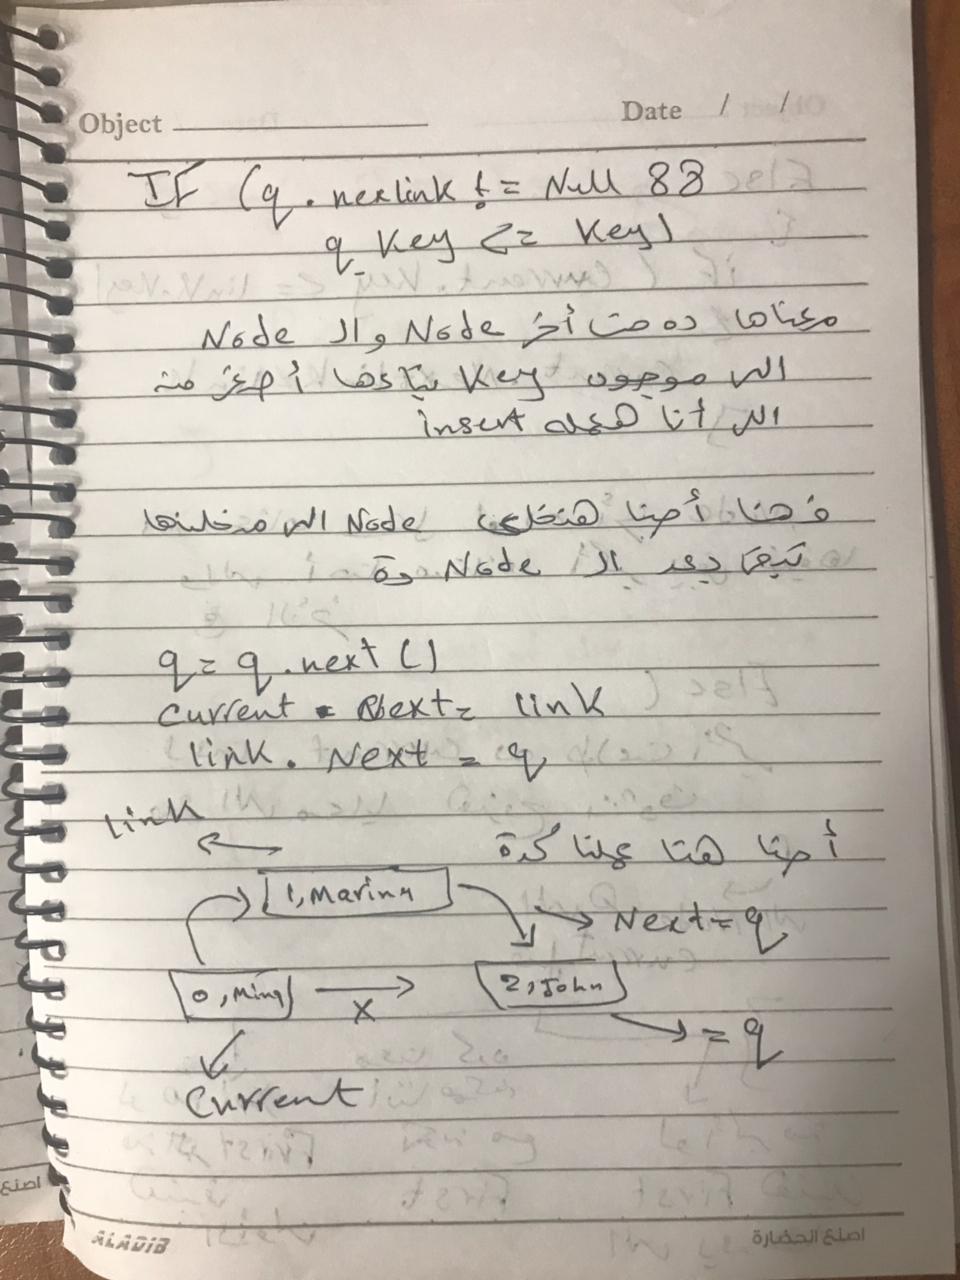 Object
Date / /
IF (q.nexlink != Null &&
q key <= key)
معناها ده مت أخر Node و ال Node
الى موجود key بتاعها أصغر منه
الى أنا هعمله insert
فهنا أحنا هنخلى Node الى مدخلينها
تبقى بعد ال Node دة
q = q.next ()
Current. Next = link
link. Next = q
أحنا هنا عملنا كدة
Link
1, Marina
Next = q
0, Mina
X
2, John
= q
Current
ALADIB
اصنع الحضارة